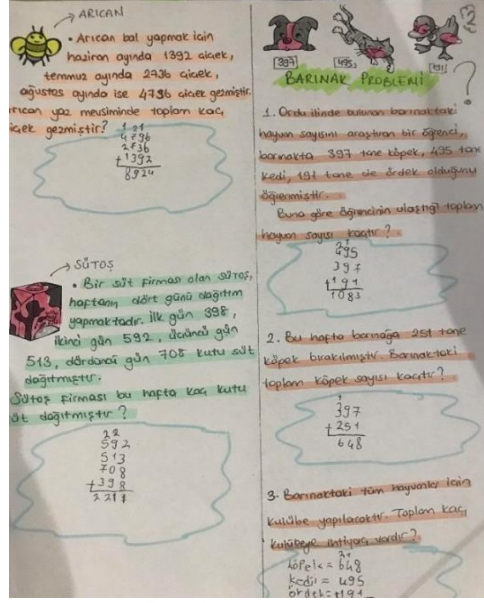 ARICAN
• Arıcan bal yapmak için
haziran ayında 1392 çiçek,
temmuz ayında 2736 çiçek,
ağustos ayında ise 4796 çiçek gezmiştir.
Arıcan yaz mevsiminde toplam kaç
çiçek gezmiştir?
1 2 1
4796
2736
+1392
8924
SÜTOŞ
• Bir süt firması olan SÜTOŞ,
haftanın dört günü dağıtım
yapmaktadır. İlk gün 398,
ikinci gün 592, üçüncü gün
513, dördüncü gün 708 kutu süt
dağıtmıştır.
Sütoş firması bu hafta kaç kutu
süt dağıtmıştır?
22
592
513
708
+398
2211
397
495
191
BARINAK PROBLEMİ
?
1. Ordu ilinde bulunan barınaktaki
hayvan sayısını araştıran bir öğrenci,
barınakta 397 tane köpek, 495 tane
kedi, 191 tane de ördek olduğunu
öğrenmiştir.
Buna göre öğrencinin ulaştığı toplam
hayvan sayısı kaçtır?
21
495
397
+191
1083
2. Bu hafta barınağa 251 tane
köpek bırakılmıştır. Barınaktaki
toplam köpek sayısı kaçtır?
1
397
+251
648
3. Barınaktaki tüm hayvanlar için
kulübe yapılacaktır. Toplam kaç
kulübeye ihtiyaç vardır?
köpek = 648
kedi = 495
ördek = +191